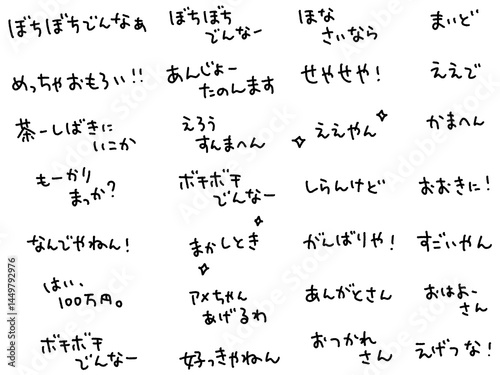 ぼちぼちでんなぁ
ぼちぼち
でんなー
ほな
さいなら
まいど
めっちゃおもろい!!
あんじょー
たのんます
せやせや!
ええで
茶ーしばきに
いこか
えろう
すんまへん
ええやん
かまへん
もーかり
まっか?
ボチボチ
でんなー
しらんけど
おおきに!
なんでやねん!
まかしとき
がんばりや!
すごいやん
はい、
100万円。
アメちゃん
あげるわ
あんがとさん
おはよー
さん
ボチボチ
でんなー
好っきやねん
おつかれ
さん
えげつな!
Adobe Stock | #1449792976